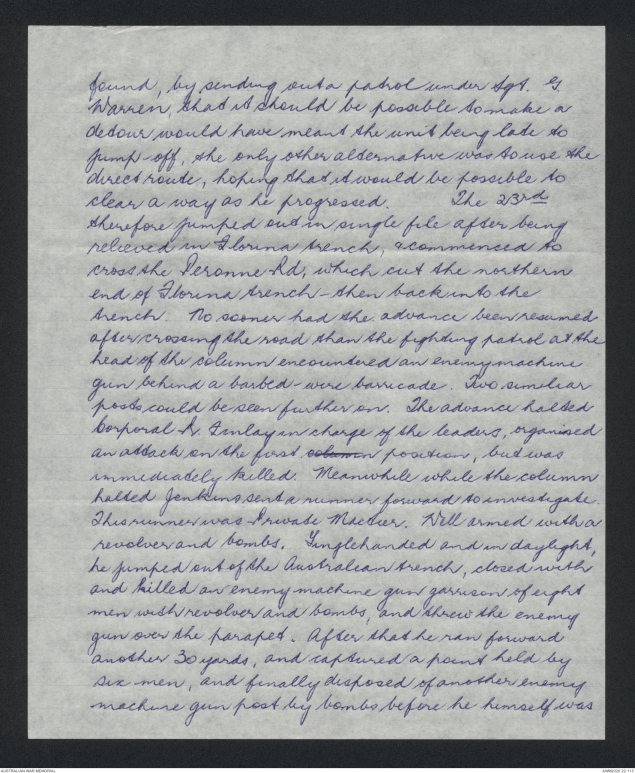 found, by sending out a patrol under Sgt. G.
Warren, that it should be possible to make a
detour would have meant the unit being late to
jump-off, the only other alternative was to use the
direct route, hoping that it would be possible to
clear a way as he progressed. The 23rd
therefore jumped out in single file after being
relieved in Florina trench, & commenced to
cross the Peronne Rd, which cut the northern
end of Florina trench - then back into the
trench. No sooner had the advance been resumed
after crossing the road than the fighting patrol at the
head of the column encountered an enemy machine
gun behind a barbed-wire barricade. Two similiar
posts could be seen further on. The advance halted
Corporal R. Finlay in charge of the leaders, organised
an attack on the first column position, but was
immediately killed. Meanwhile while the column
halted Jenkins sent a runner forward to investigate.
This runner was Private Mactier. Well armed with a
revolver and bombs. Singlehanded and in daylight,
he jumped out of the Australian trench, closed with
and killed an enemy machine gun garrison of eight
men with revolver and bombs, and threw the enemy
gun over the parapet. After that he ran forward
another 30 yards, and captured a point held by
six men, and finally disposed of another enemy
machine gun post by bombs before he himself was
AUSTRALIAN WAR MEMORIAL